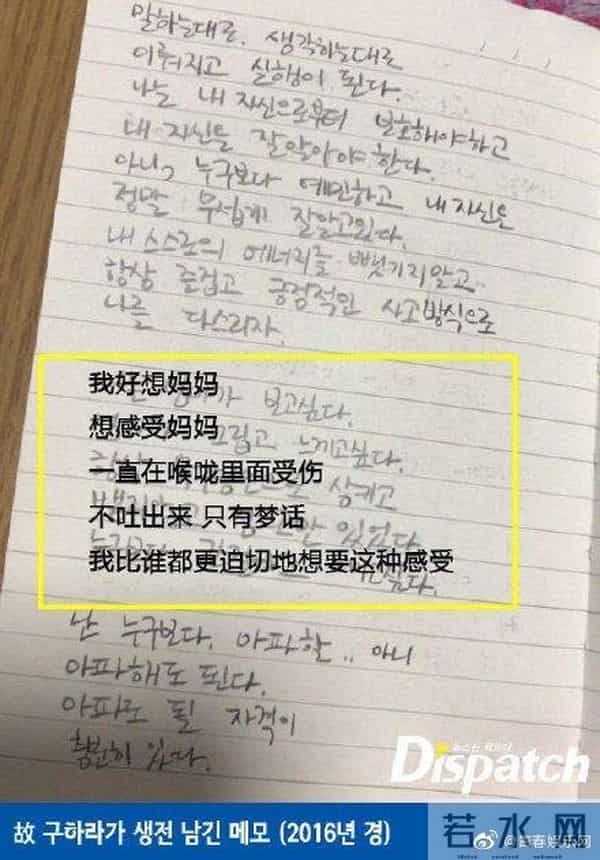 말하는대로. 생각하는대로
이뤄지고 실행이 된다.
나는 내 자신으로부터 보호해야하고
내 자신을 잘알아야 한다.
아니, 누구보다 예민하고 내 자신은
정말 무섭게 잘알고있다.
내 스스로의 에너지를 뺏기지말고
항상 즐겁고 긍정적인 사고방식으로
나를 다스리자.
我好想妈妈
가 보고싶다.
想感受妈妈
그립고 느끼고싶다.
一直在喉咙里面受伤
삼키고
不吐出来 只有梦话
있었다
我比谁都更迫切地想要这种感受
싶다.
난 누구보다. 아파할.. 아니
아파해도 된다.
아파도 될 자격이
충분히 있다.
뉴스는 팩트다
Dispatch
故 구하라가 생전 남긴 메모 (2016년 경)
若水网
娱乐网